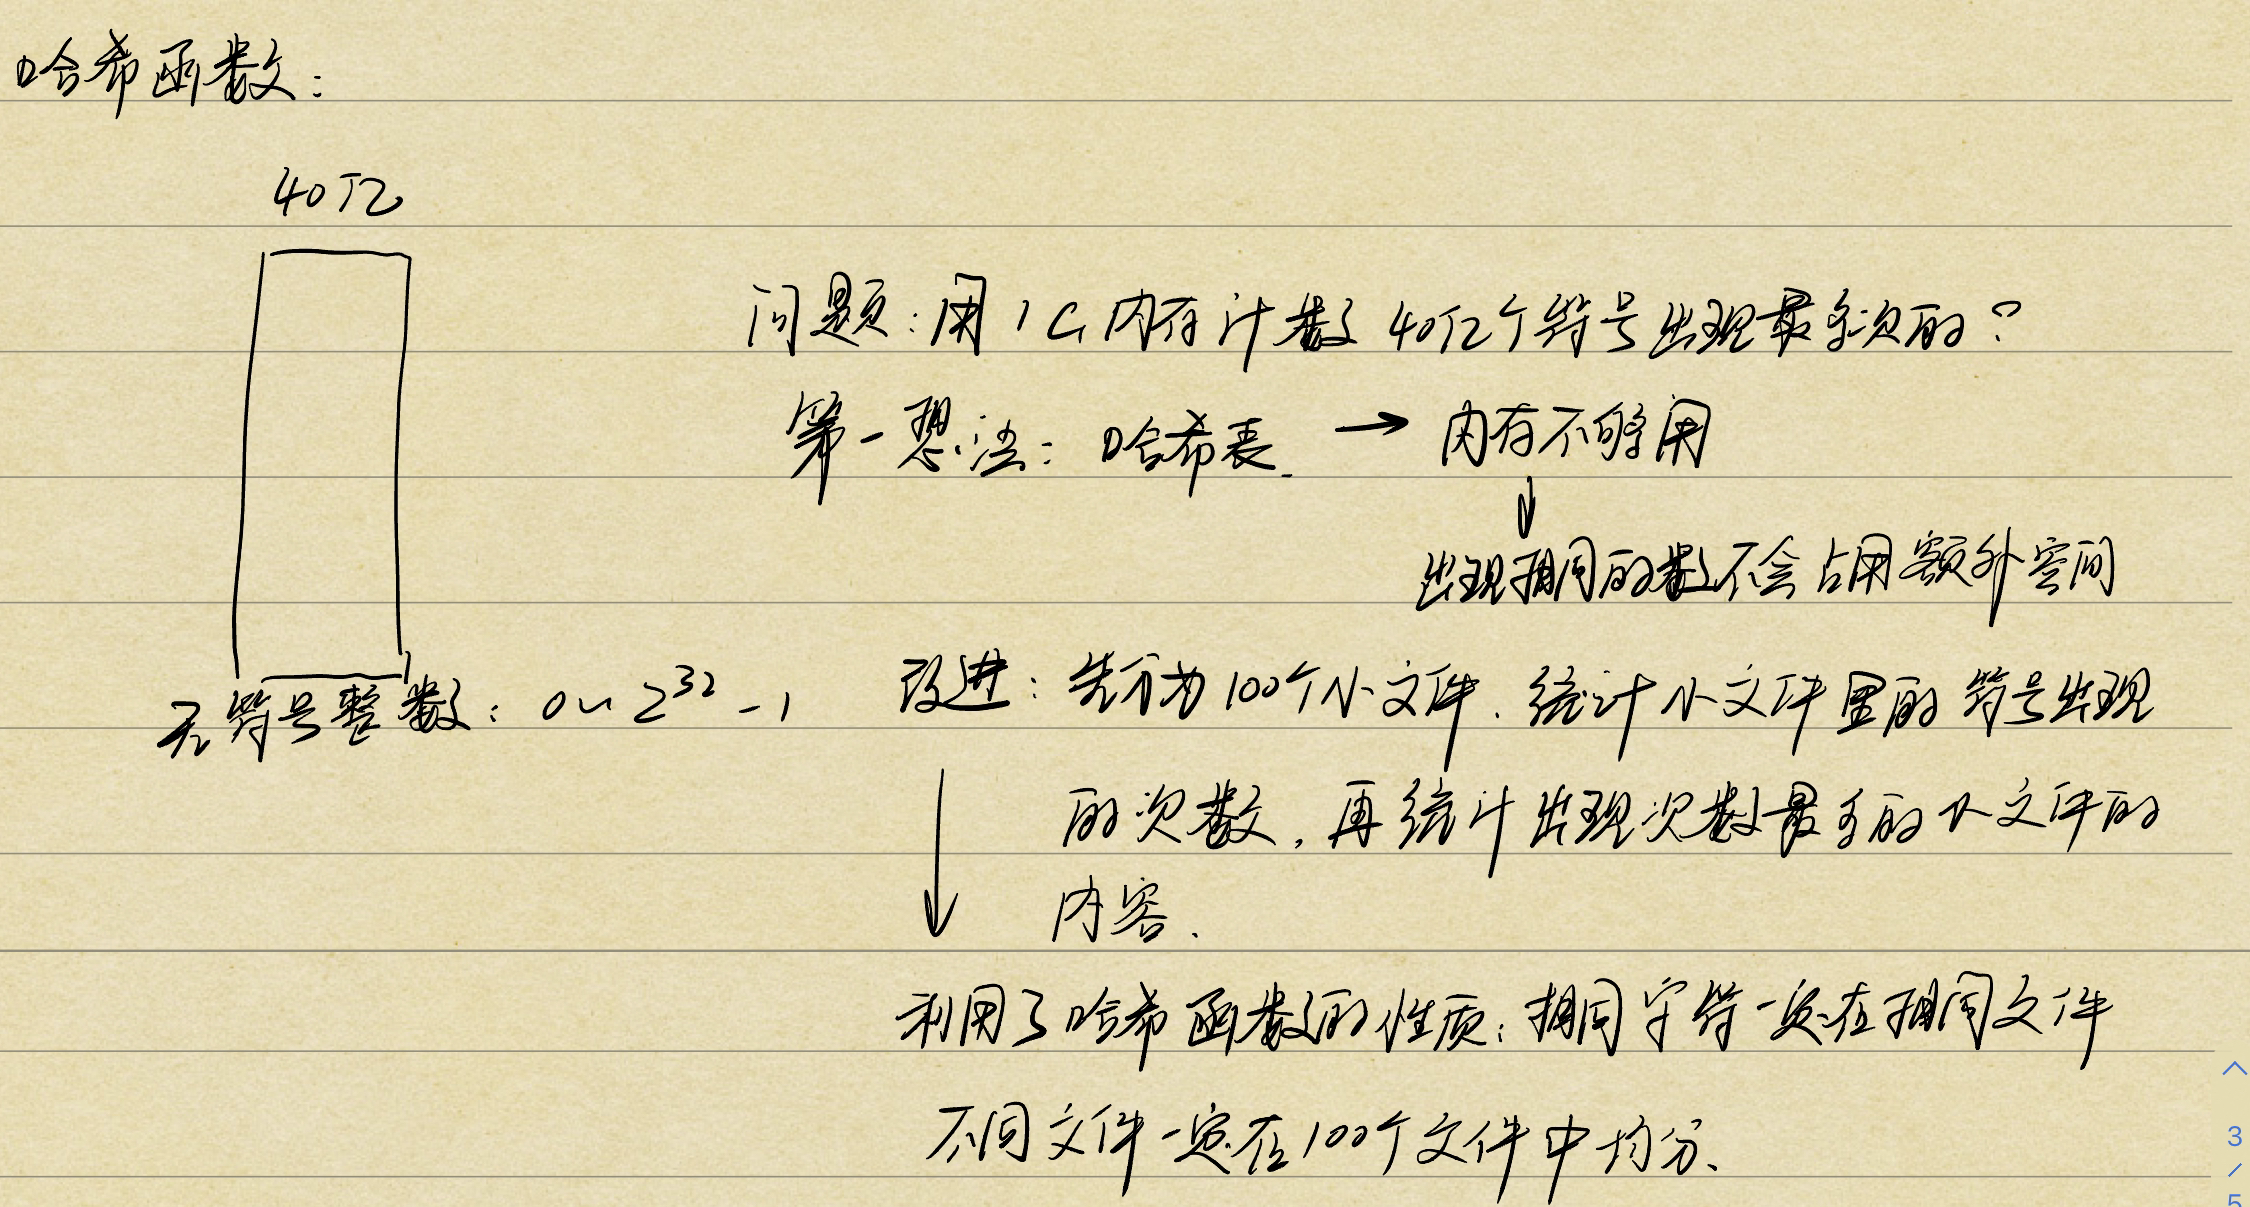 哈希函数：
40亿
问题：用1G内存计数40亿个符号出现最多次的？
第一想法：哈希表. → 内存不够用
↓
出现相同的数不会占用额外空间
无符号整数：0~2³²-1
改进：先分为100个小文件．统计小文件里的符号出现
的次数，再统计出现次数最多的小文件的
内容．
↓
利用了哈希函数的性质：相同字符一定在相同文件
不同文件一定在100个文件中均分、
3
/
5